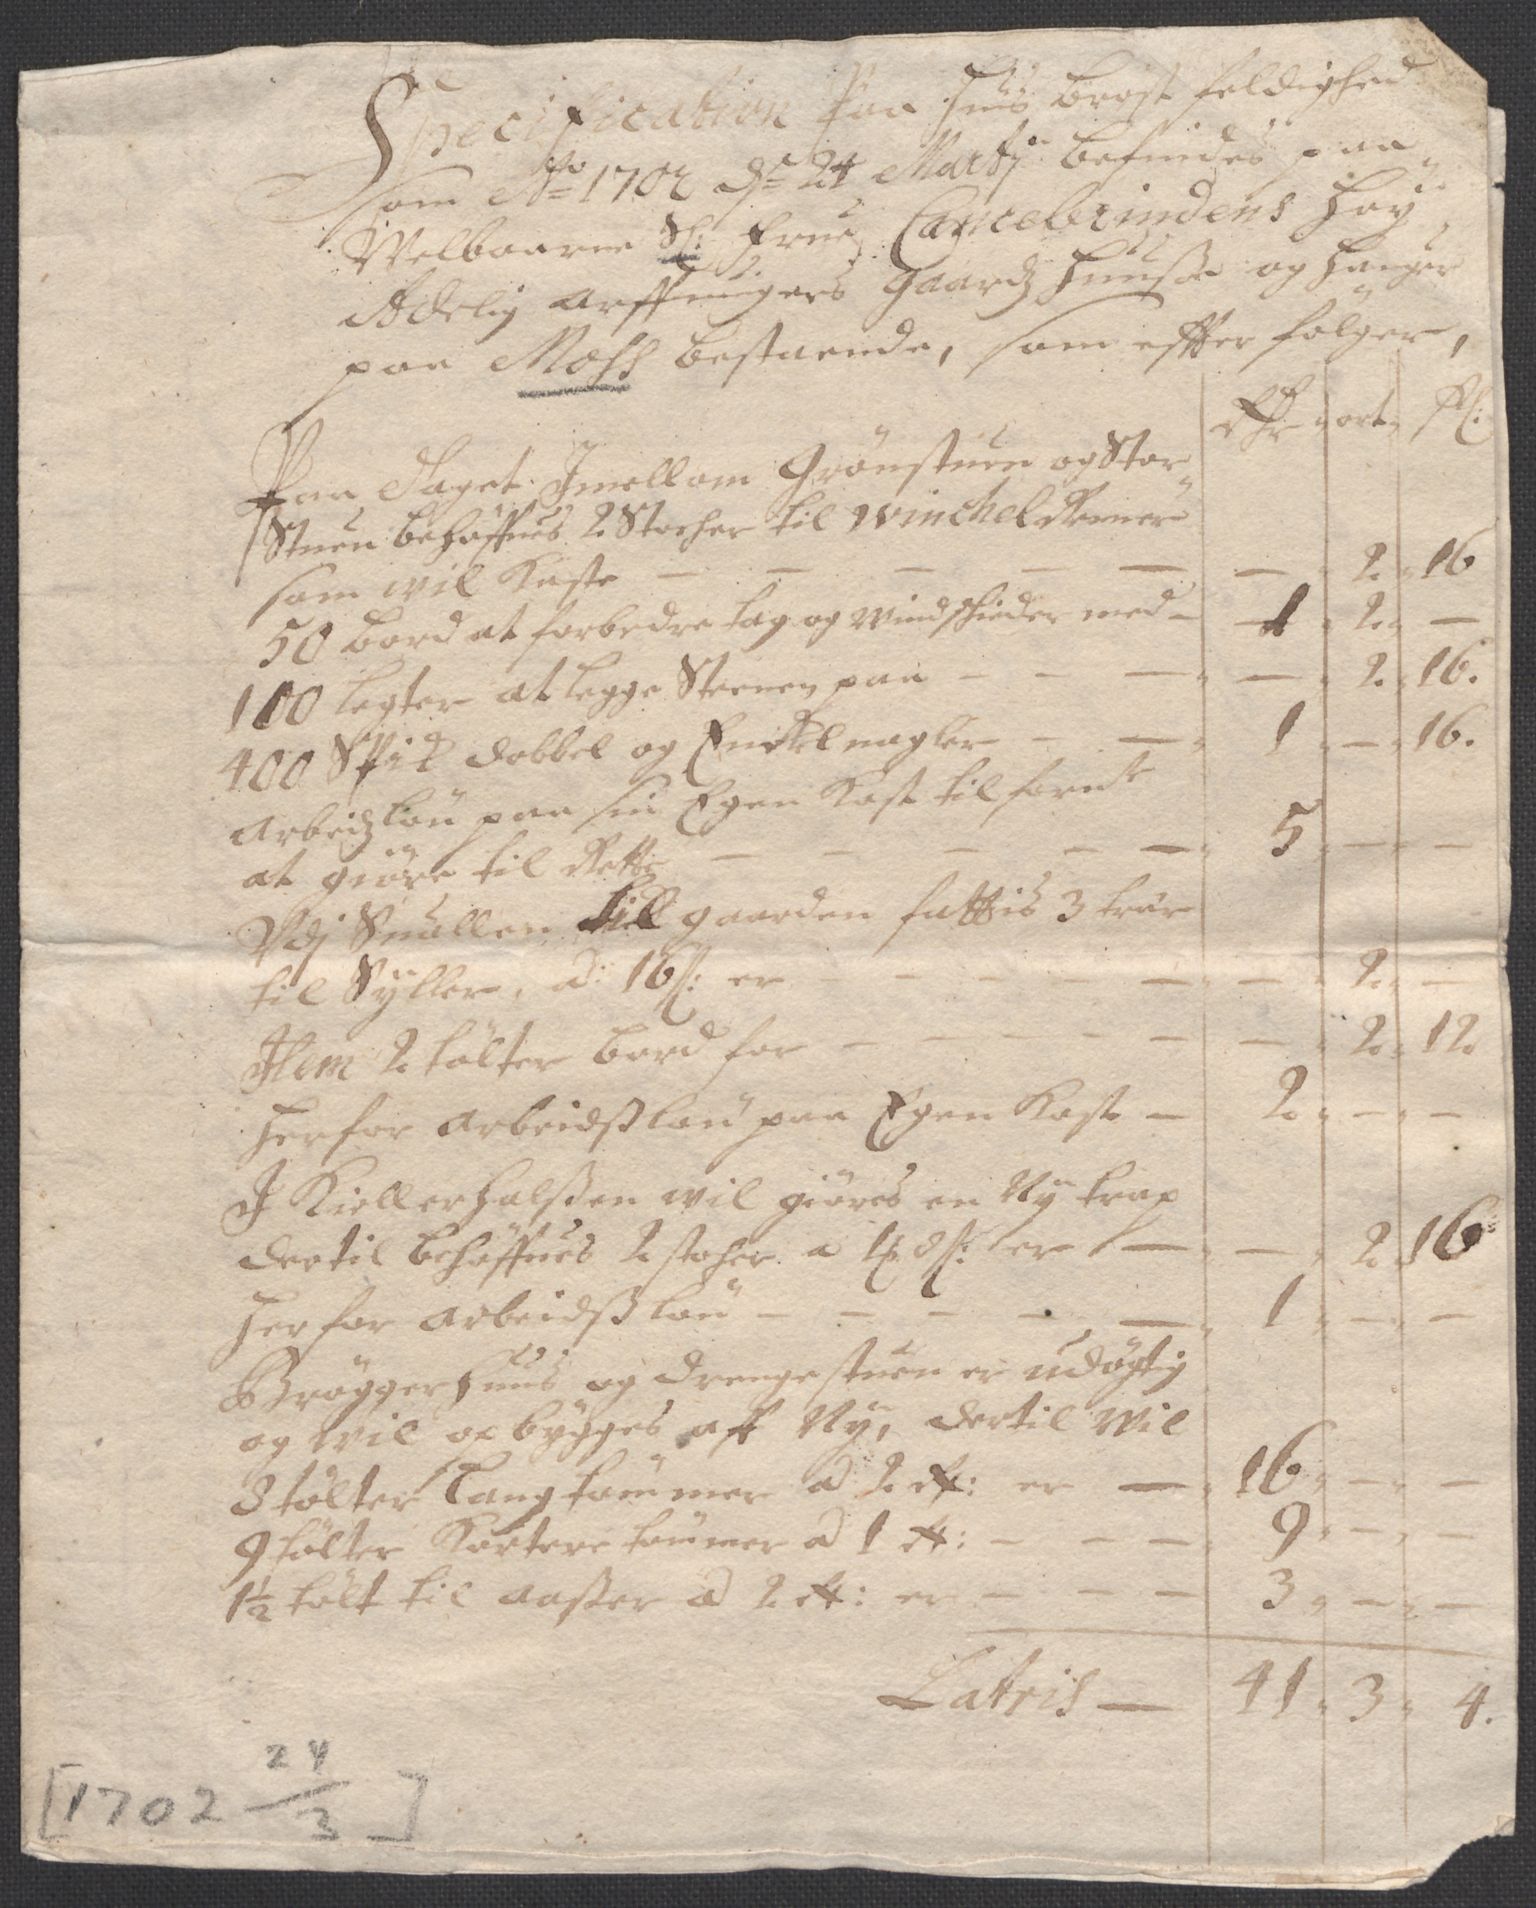 Specification Paa Huus brøst feldighed
som Ao 1702 d: 24 Martij befindes paa
Welbaarne Sl: Frue Cancelerindens Høy
Adelig Arffvingers gaards Huusse og Hauger
paa Moss bestaaende, som effter følger,
Rdr ort sk:
Paa Taget Imellom Grønstuen og Stor
Stuen behøffues 2 Stocher til winchel Renner
som wil Koste — — — — — — 2. 16
50 bord at forbedre tag og windschieder med — 1. 2. —
100 legter at legge Steenen paa — — — — 2. 16.
400 Spiker dobbel og Enckel nagler — — 1. — 16.
Arbeidzløn paa sin Egen Kost til forn:de
at giøre til Rette — — — — — 5 — —
Vdj Suallen till gaarden fattis 3 trær
til Syller, a: 16 s: er — — — — — 2. —
Item 2 tölter bord for — — — — — — 2. 12
Herfor arbeidssløn paa Egen Kost — 2. — —
I Kiellerhalssen wil giøres en Ny trap
dertil behøffues 2 stocher a 1 8 s: er — — 2. 16
Herfor arbeidssløn — — — — — 1 — —
Bryggerhuus og drengestuen er udögtig
og wil opbygges aff Ny, dertil wil
8 tölter Langtømmer a 2 r: er — 16. — —
9 tölter Kortere tømmer a 1 r: — — — 9. — —
1½ tölt til aasser a 2 r: er — — — 3. — —
Latris — 41. 3. 4.
[1702 24/3]